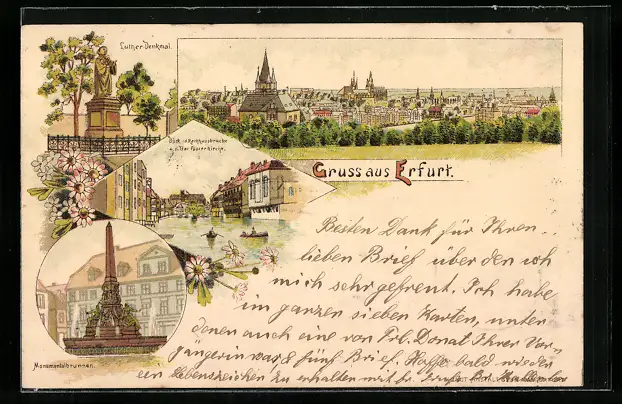 Luther-Denkmal.
Gruss aus Erfurt.
Monumentalbrunnen.
Besten Dank für Ihren
lieben Brief über den ich
mich sehr gefreut. Ich habe
im ganzen sieben Karten, unter
denen auch eine von Frl. Donat Ihrer Vor-
gängerin war, & fünf Brief. Hoffe bald wieder
ein Lebenszeichen zu erhalten mit